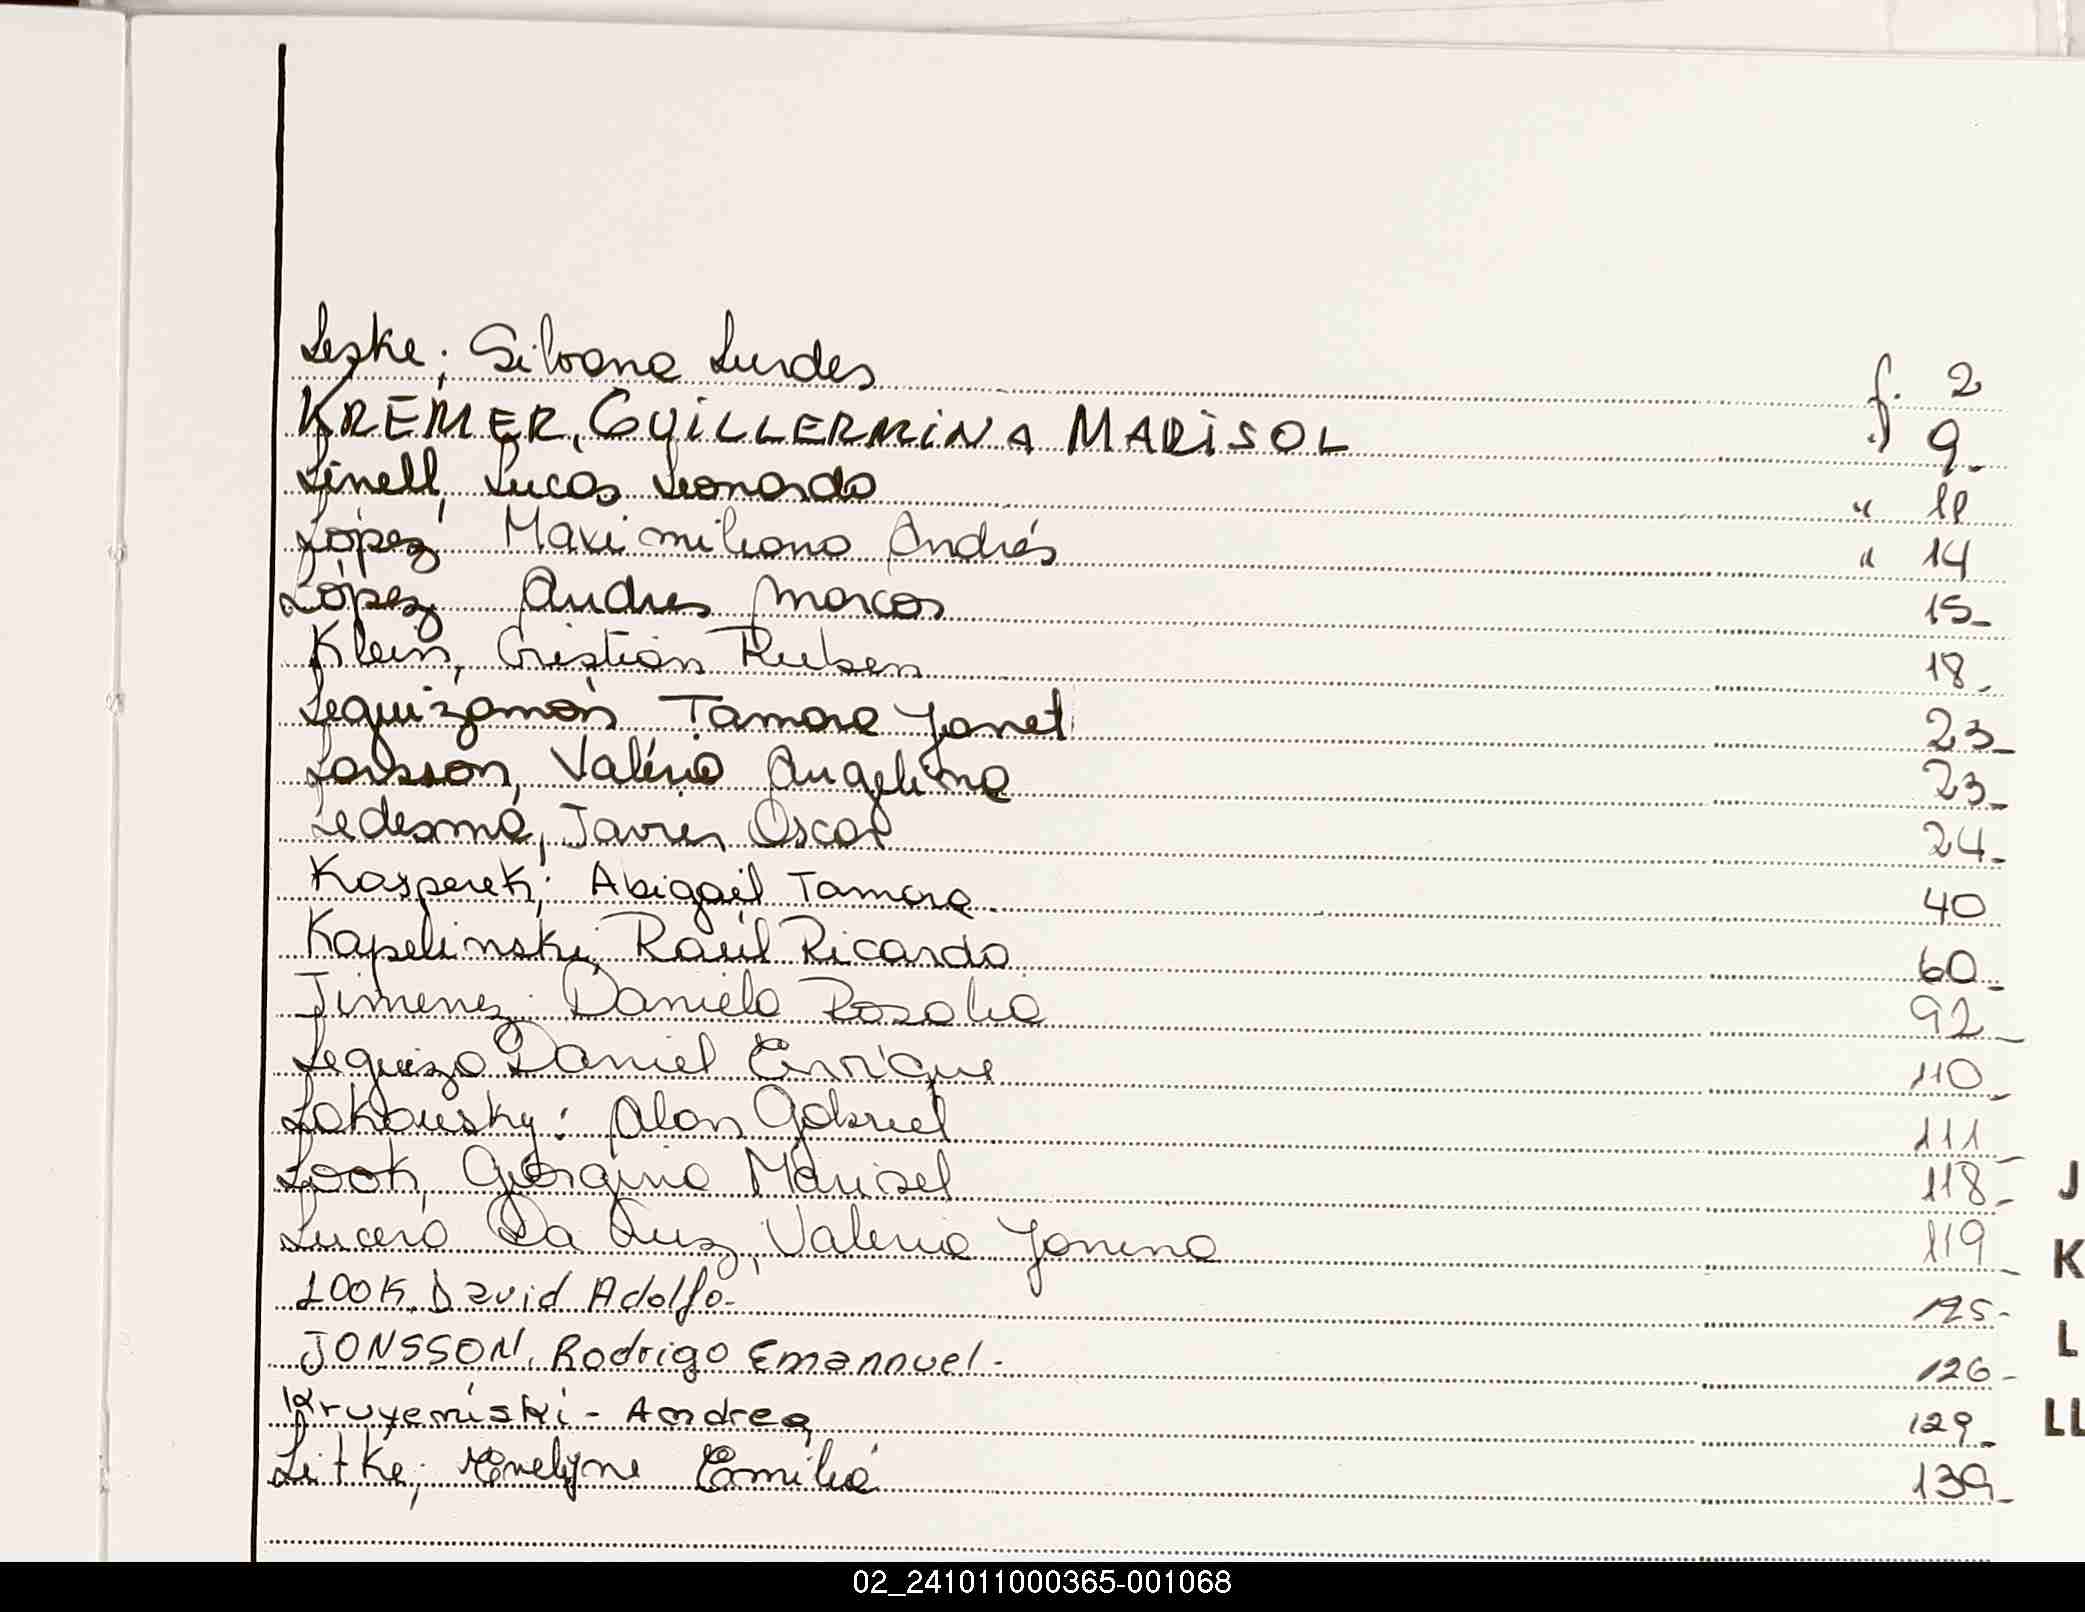 Leske; Silvana Lurdes f. 2
KREMER, GUILLERMINA MARISOL " 9-
Linell, Lucas Leonardo " 11
López Maximiliano Andrés " 14
López Andres Marcos 15-
Klein, Cristián Ruben 18-
Leguizamón Tamara Janet 23-
Larsson, Valéria Angelina 23-
Ledesma, Javier Oscar 24-
Kasperek; Abigail Tamara 40
Kapelinski, Raúl Ricardo 60-
Jimenez Daniela Rosalia 92-
Leguiza Daniel Enrique 110-
Lokousky: Alan Gabriel 111-
Look, Georgina Marisel 118-
Lucero Da Luz, Valeria Janina 119-
LOOK, David Adolfo- 125-
JONSSON, Rodrigo Emannuel- 126-
Kruyeniski - Andrea 129-
Litke; Evelyne Emilia 139-
J
K
L
LL
02_241011000365-001068